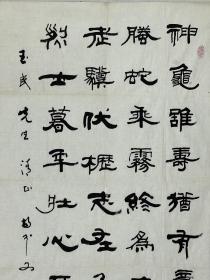 神龜雖壽猶有
騰蛇乘霧終為
老驥伏櫪志在
烈士暮年壯心
玉民先生清正